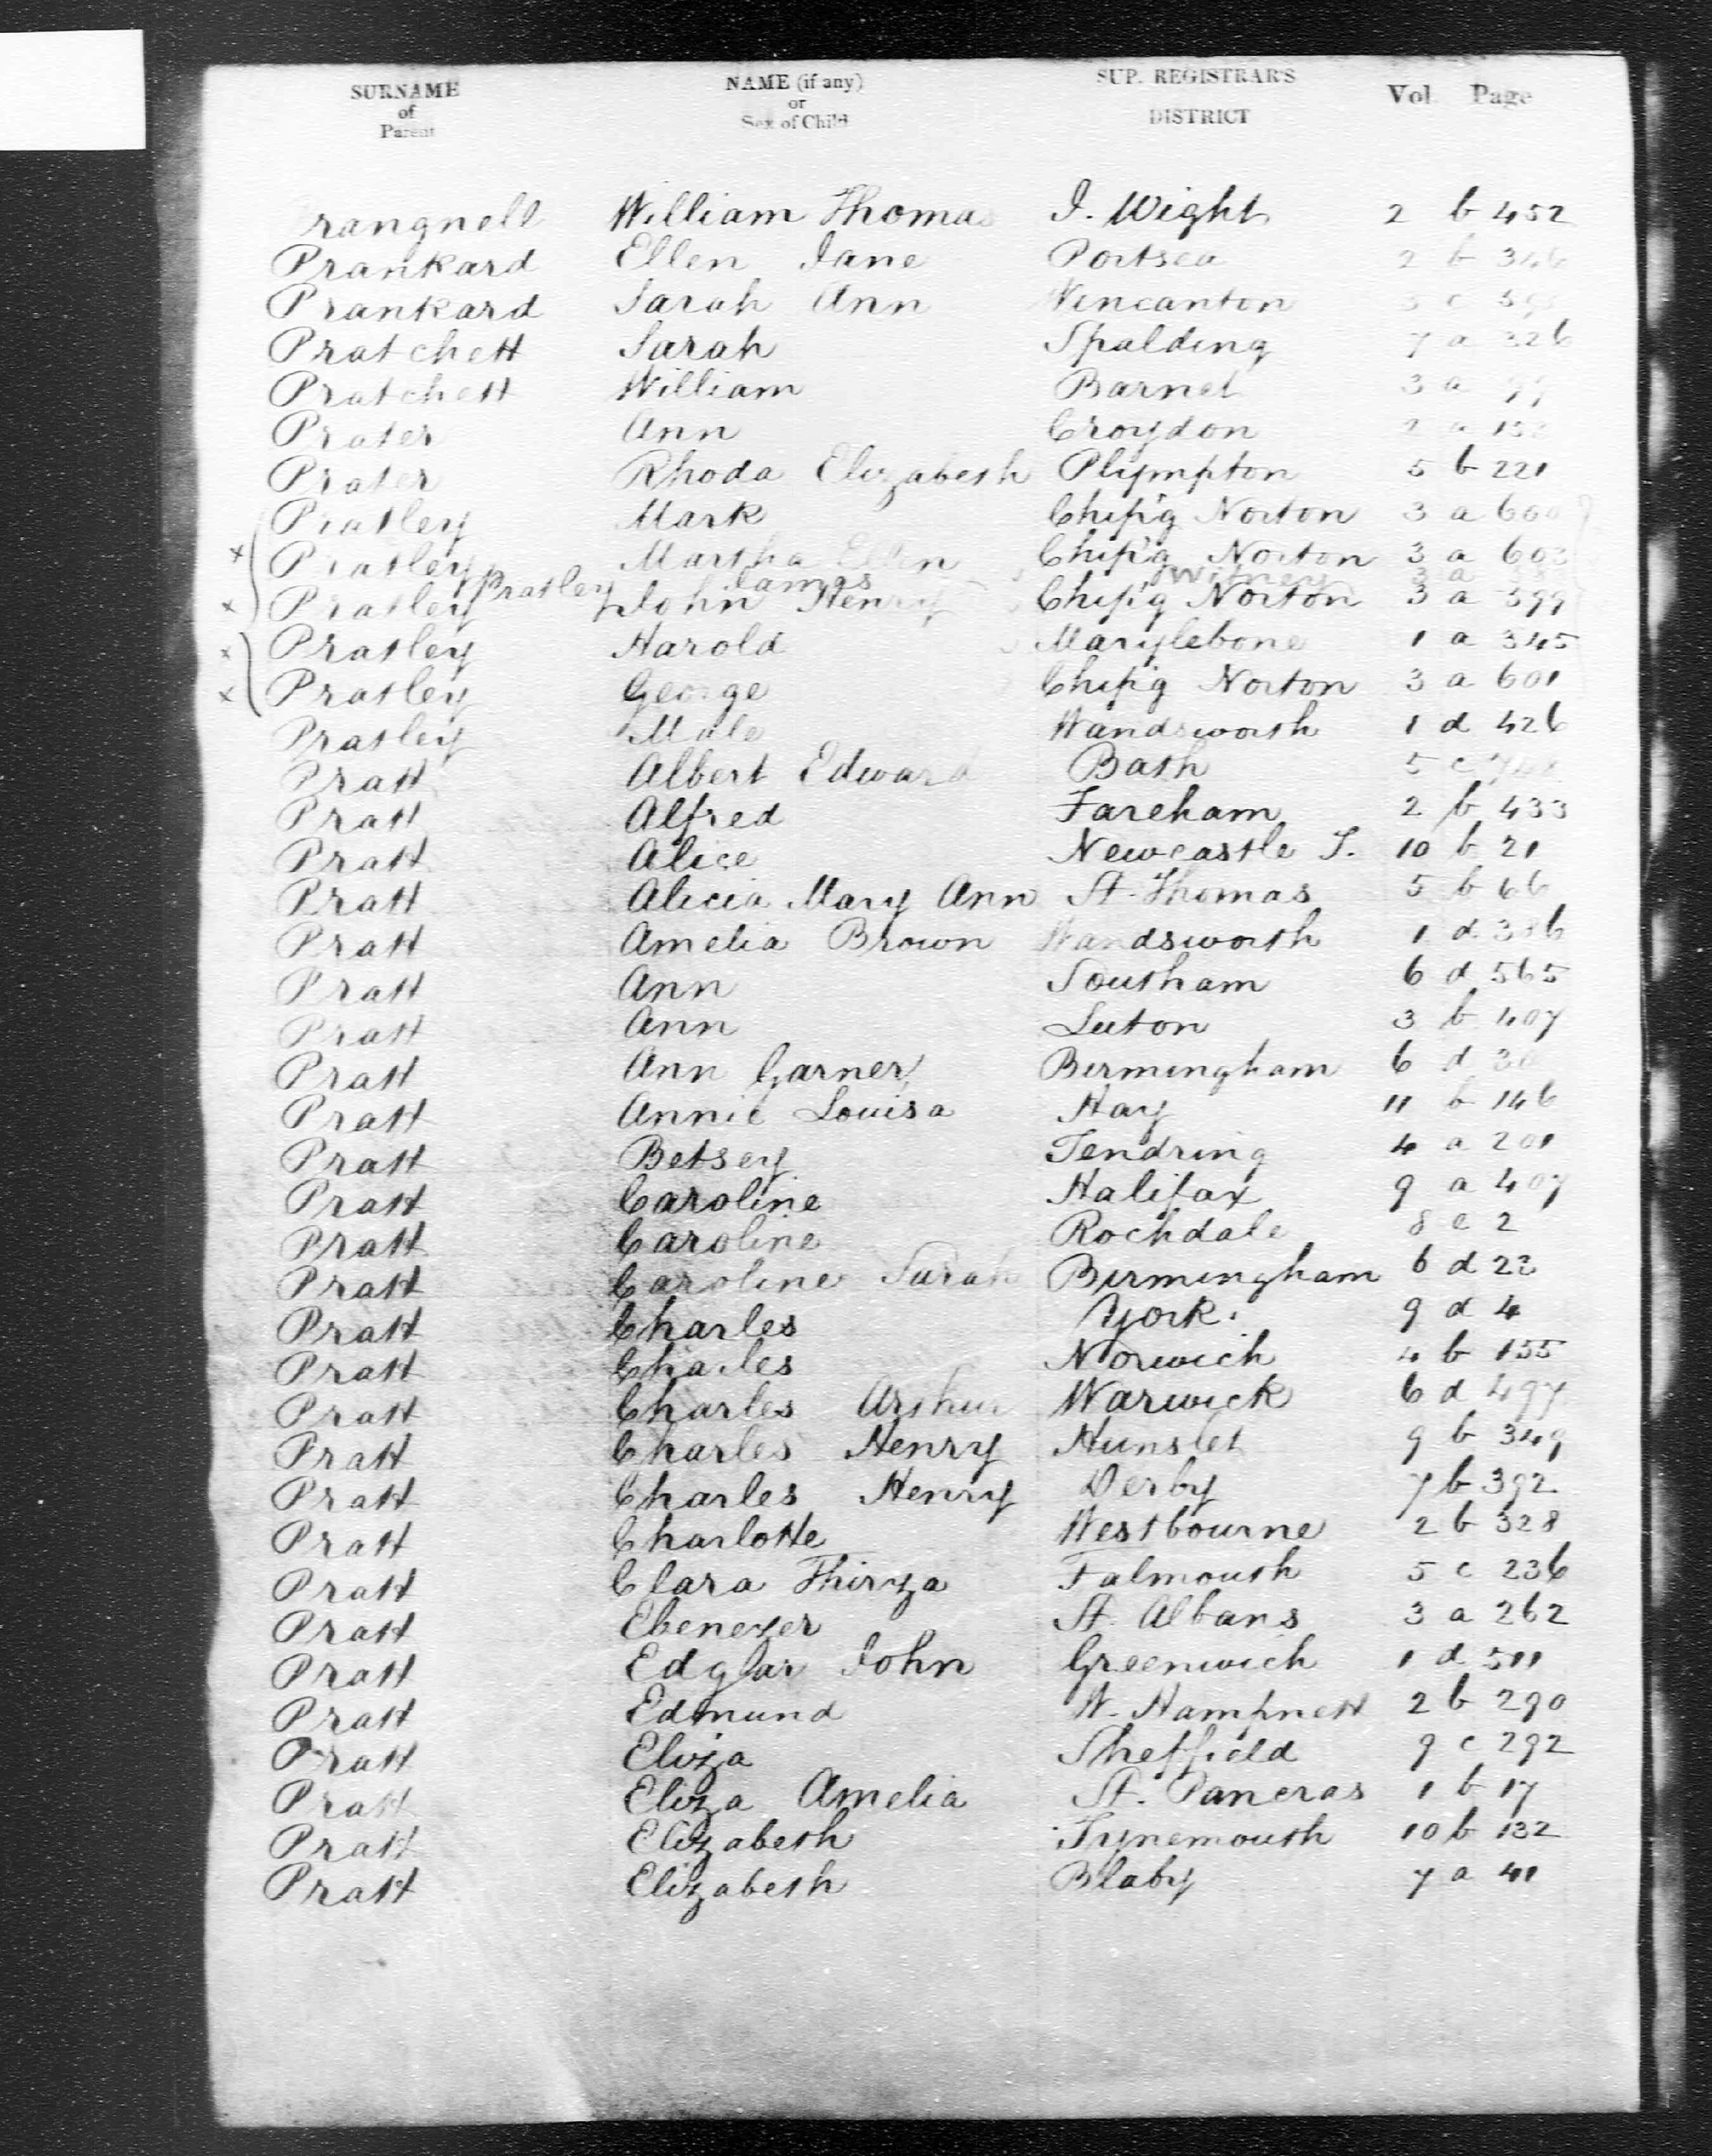 SURNAME of Parent NAME (if any) or Sex of Child SUP. REGISTRAR'S DISTRICT Vol. Page
rangnell William Thomas I. Wight 2 b 452
Prankard Ellen Jane Portsea 2 b
Prankard Sarah Ann Wincanton
Pratchett Sarah Spalding 7 a 326
Pratchett William Barnet 3 a 99
Prater Ann Croydon 2 a
Prater Rhoda Elizabeth Plympton 5 b 221
Pratley Mark Chip'g Norton 3 a 600
x Pratley Martha Ellen Chip'g Norton 3 a 603
Pratley James Witney 3 a
x Pratley John Henry Chip'g Norton 3 a 599
x Pratley Harold Marylebone 1 a 345
x Pratley George Chip'g Norton 3 a 601
Pratley Male Wandsworth 1 d 426
Pratt Albert Edward Bath 5 c
Pratt Alfred Fareham 2 b 433
Pratt Alice Newcastle T. 10 b 21
Pratt Alicia Mary Ann St. Thomas 5 b 66
Pratt Amelia Brown Wandsworth 1 d
Pratt Ann Southam 6 d 565
Pratt Ann Luton 3 b 407
Pratt Ann Garner Birmingham 6 d
Pratt Annie Louisa Hay 11 b 146
Pratt Betsey Tendring 4 a 201
Pratt Caroline Halifax 9 a 407
Pratt Caroline Rochdale 8 e 2
Pratt Caroline Sarah Birmingham 6 d 22
Pratt Charles York. 9 d 4
Pratt Charles Norwich 4 b 155
Pratt Charles Arthur Warwick 6 d 497
Pratt Charles Henry Hunslet 9 b 349
Pratt Charles Henry Derby 7 b 392
Pratt Charlotte Westbourne 2 b 328
Pratt Clara Thirza Falmouth 5 c 236
Pratt Ebenezer St. Albans 3 a 262
Pratt Edgar John Greenwich 1 d 511
Pratt Edmund W. Hampnett 2 b 290
Pratt Eliza Sheffield 9 c 292
Pratt Eliza Amelia St. Pancras 1 b 17
Pratt Elizabeth Tynemouth 10 b 132
Pratt Elizabeth Blaby 7 a 41